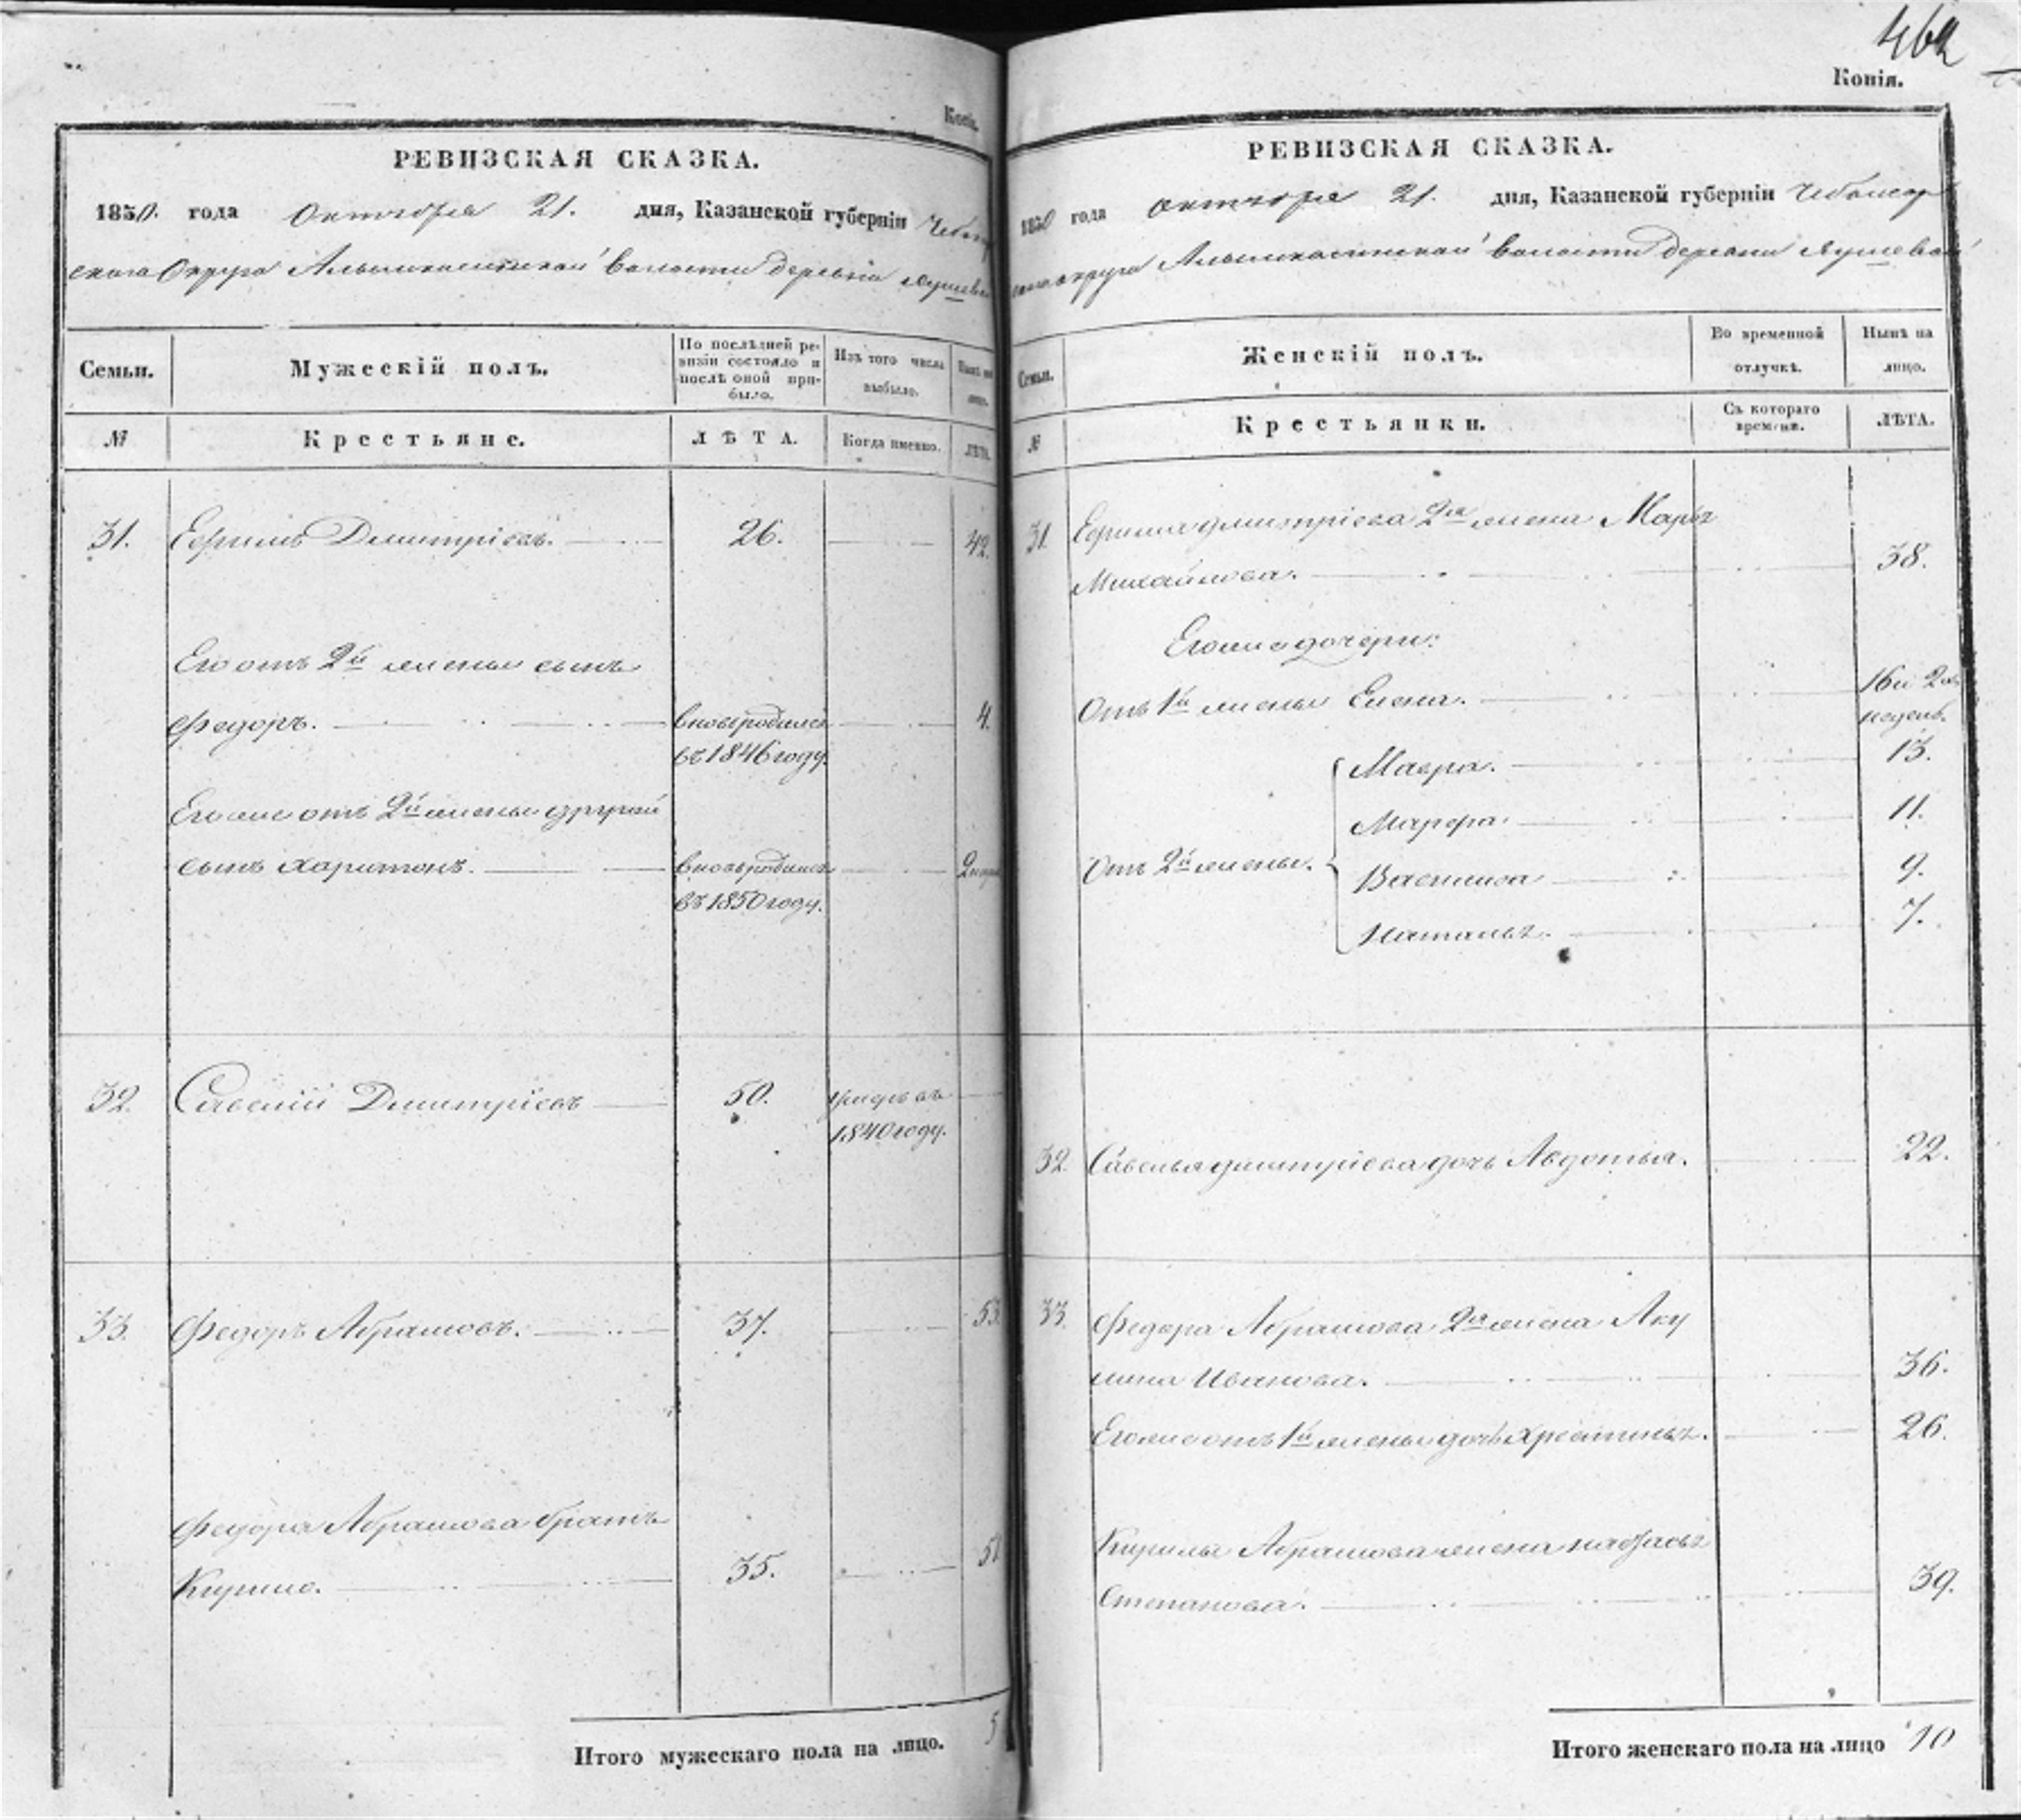 Копія.
РЕВИЗСКАЯ СКАЗКА.
1850. года Октября 21. дня, Казанской губерніи Чебокс
скаго Округа Алымкасинской волости деревни
Семьи.
Мужескій полъ.
По послѣдней ре-
визіи состояло и
послѣ оной при-
было.
Изъ того числа
выбыло.
Нынѣ на
лицо.
№
Крестьяне.
ЛѢТА.
Когда именно.
ЛѢТА.
31. Ефимъ Дмитріевъ. 26. 42.
Его отъ 2й жены сынъ
Федоръ. вновь родился 4.
въ 1846 году.
Его же отъ 2й жены другой
сынъ Харитонъ. вновь родился
въ 1850 году.
32. Савелій Дмитріевъ 50. умеръ въ
1840 году.
33. Федоръ Абрамовъ. 37. 53.
Федора Абрамова братъ
Кирило. 35. 51
Итого мужескаго пола на лицо. 5
462
Копія.
РЕВИЗСКАЯ СКАЗКА.
1850 года октября 21. дня, Казанской губерніи Чебоксар
скаго округа Алымкасинской волости деревни
Семьи.
Женскій полъ.
Во временной
отлучкѣ.
Нынѣ на
лицо.
№
Крестьянки.
Съ котораго
времени.
ЛѢТА.
31. Ефима Дмитріева 2я жена Марья
Михайлова. 38.
Его же дочери:
Отъ 1й жены Елена. 16 и 2хъ
недель.
Мавра. 13.
Марфа. 11.
Отъ 2й жены. Василиса 9.
Наталья. 7.
32. Савелья Дмитріева дочь Авдотья. 22.
33. Федора Абрамова 2я жена Аку
лина Иванова. 36.
Его же отъ 1й жены дочь 26.
Кирилы Абрамова жена
Степанова. 39.
Итого женскаго пола на лицо 10